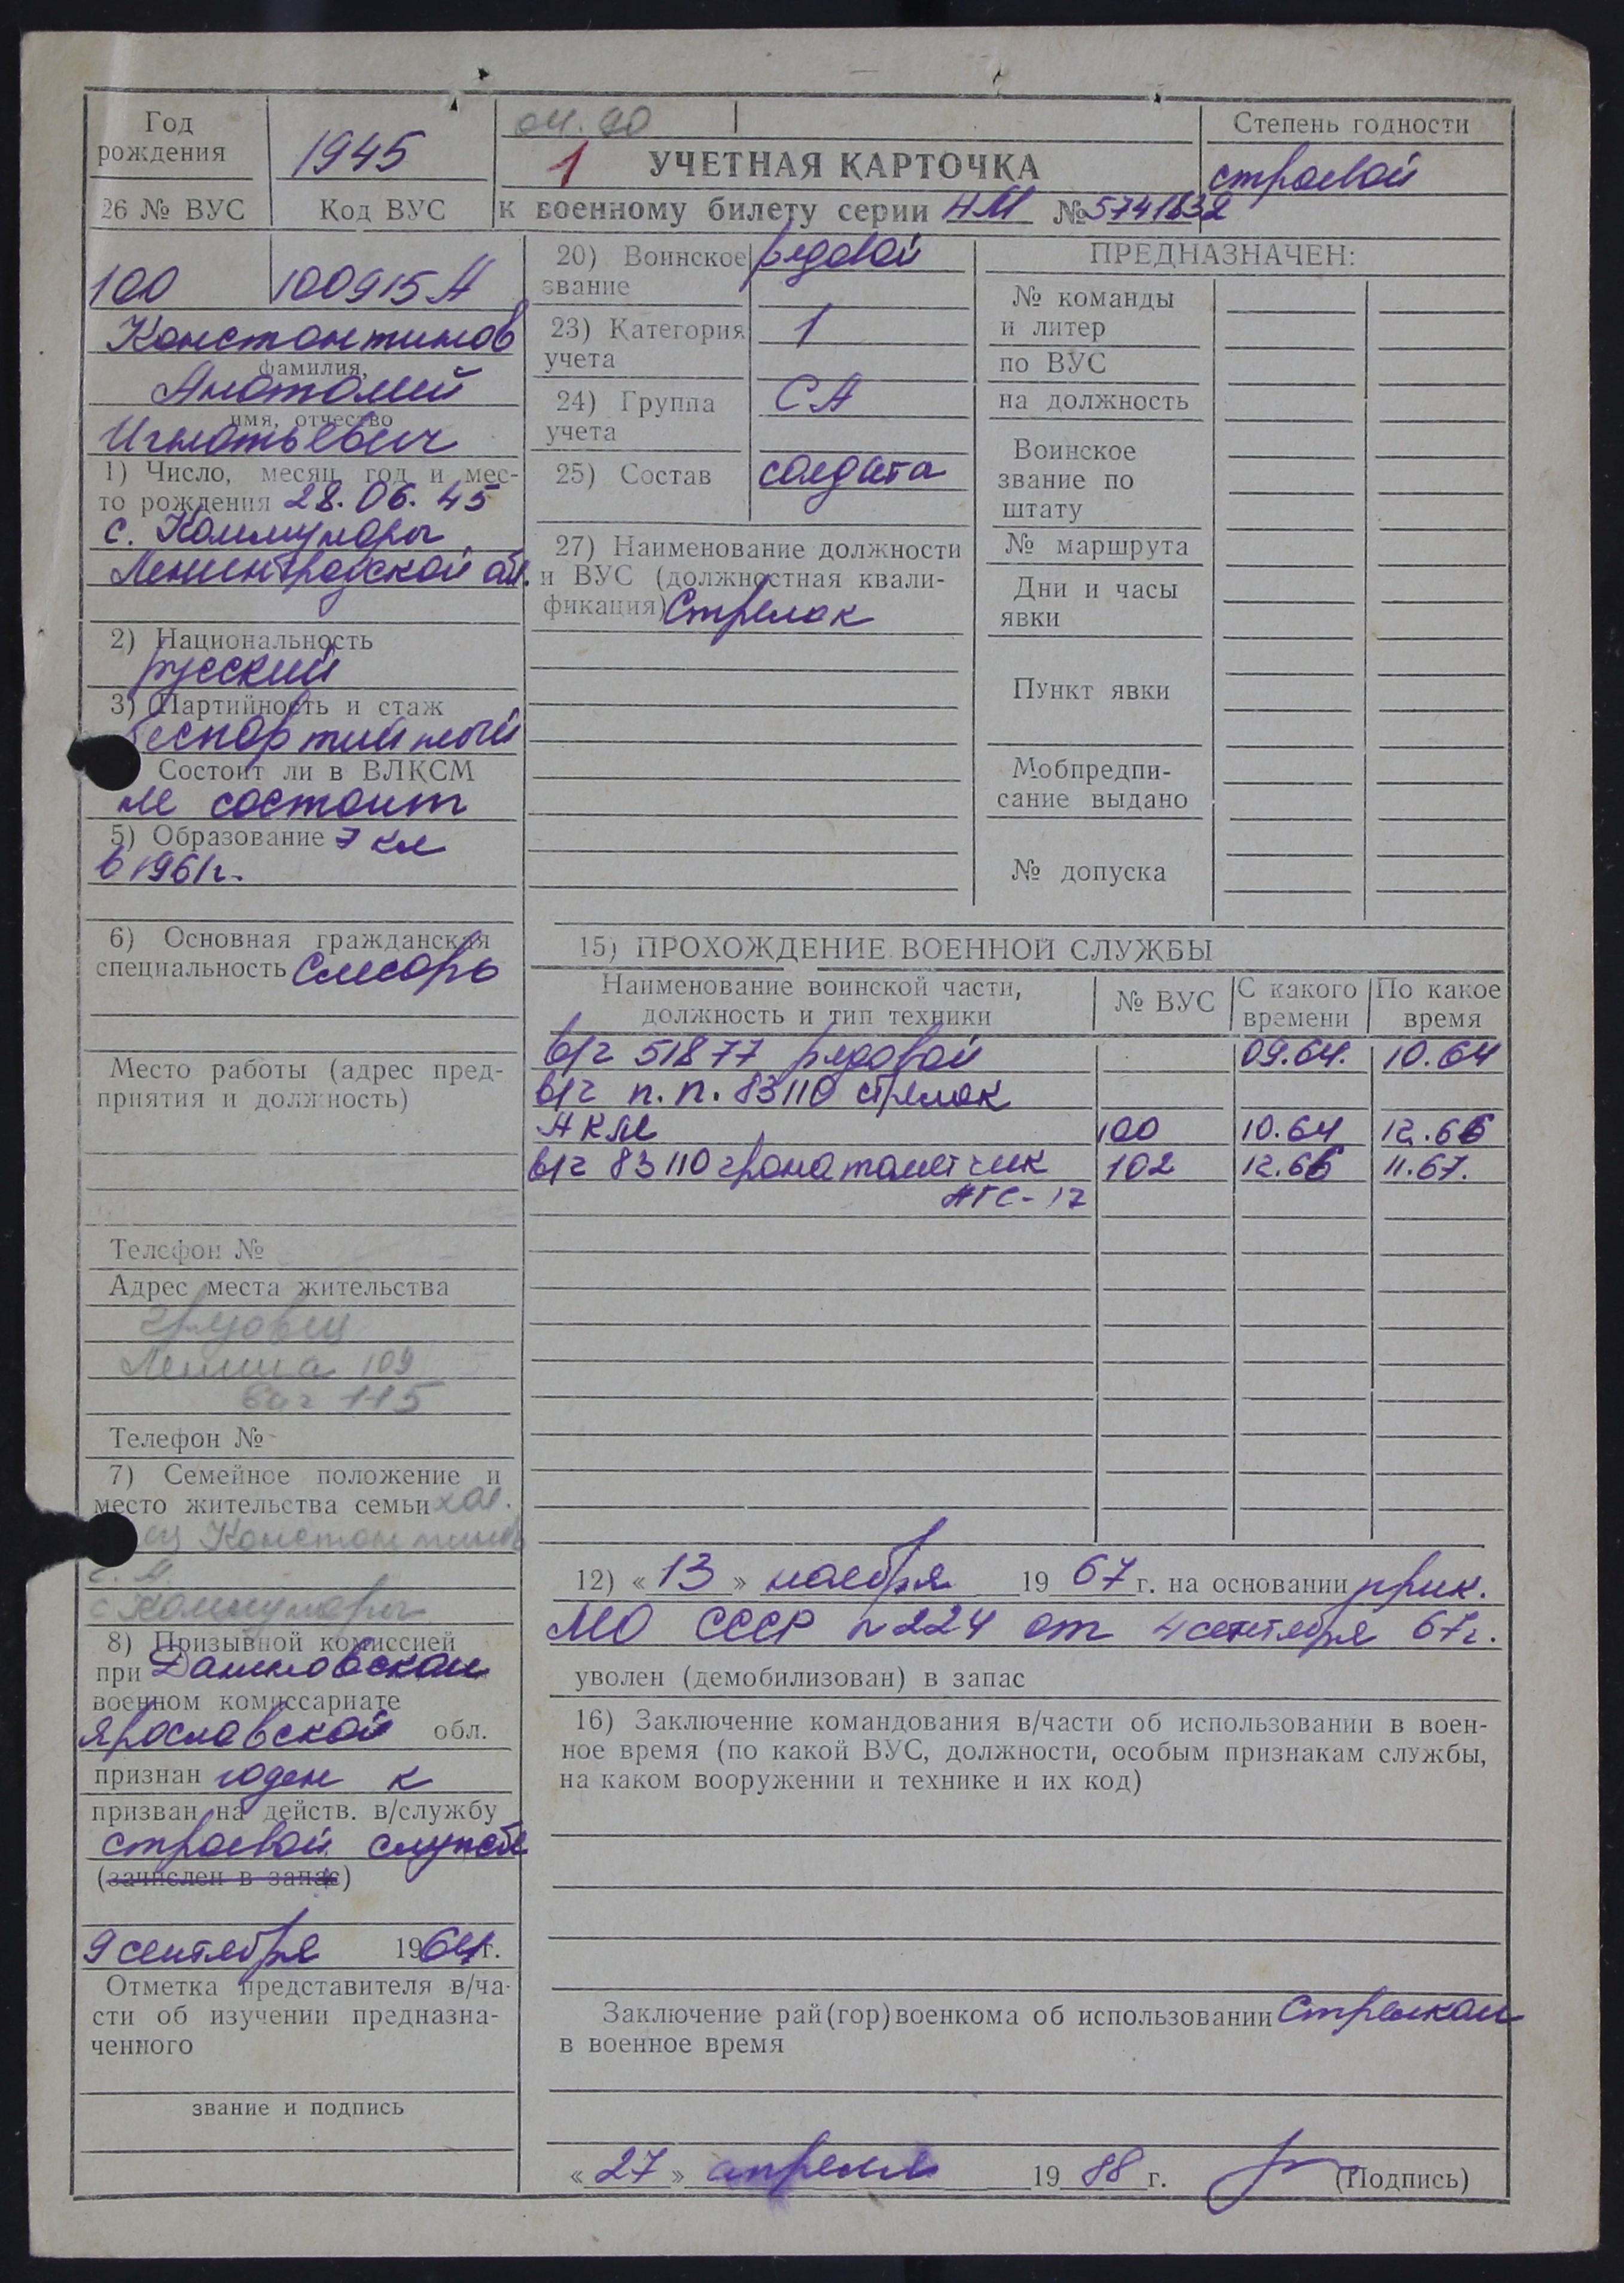 Год рождения
1945
04.90
1
УЧЕТНАЯ КАРТОЧКА
к военному билету серии НМ № 5741832
Степень годности
строевой
26 № ВУС
Код ВУС
100
100915А
Константинов
фамилия,
Анатолий
имя, отчество
Игнатьевич
1) Число, месяц, год и мес-
то рождения 28.06.45
с. Коммунары
Ленинградской обл.
2) Национальность
русский
3) Партийность и стаж
беспартийный
Состоит ли в ВЛКСМ
не состоит
5) Образование 7 кл
в 1961г.
6) Основная гражданская
специальность слесарь
Место работы (адрес пред-
приятия и должность)
Телефон №
Адрес места жительства
Ленина 109
ваг 115
Телефон №
7) Семейное положение и
место жительства семьи хол.
Константинов
с Коммунары
8) Призывной комиссией
при Даниловском
военном комиссариате
Ярославской обл.
признан годен к
призван на действ. в/службу
строевой службе
(зачислен в запас)
9 сентября 1964г.
Отметка представителя в/ча-
сти об изучении предназна-
ченного
звание и подпись
20) Воинское
звание
рядовой
23) Категория
учета
1
24) Группа
учета
СА
25) Состав
солдата
27) Наименование должности
и ВУС (должностная квали-
фикация) Стрелок
ПРЕДНАЗНАЧЕН:
№ команды
и литер
по ВУС
на должность
Воинское
звание по
штату
№ маршрута
Дни и часы
явки
Пункт явки
Мобпредпи-
сание выдано
№ допуска
15) ПРОХОЖДЕНИЕ ВОЕННОЙ СЛУЖБЫ
Наименование воинской части,
должность и тип техники
№ ВУС
С какого
времени
По какое
время
в/ч 51877 рядовой 09.64. 10.64
в/ч п.п. 83110 стрелок
АКМ 100 10.64 12.66
в/ч 83110 гранатометчик 102 12.66 11.67.
АГС-17
12) « 13 » ноября 1967 г. на основании прик.
МО СССР N 224 от 4 сентября 67г.
уволен (демобилизован) в запас
16) Заключение командования в/части об использовании в воен-
ное время (по какой ВУС, должности, особым признакам службы,
на каком вооружении и технике и их код)
Заключение рай(гор)военкома об использовании Стрелком
в военное время
« 27 » апреля 1988 г.
(Подпись)